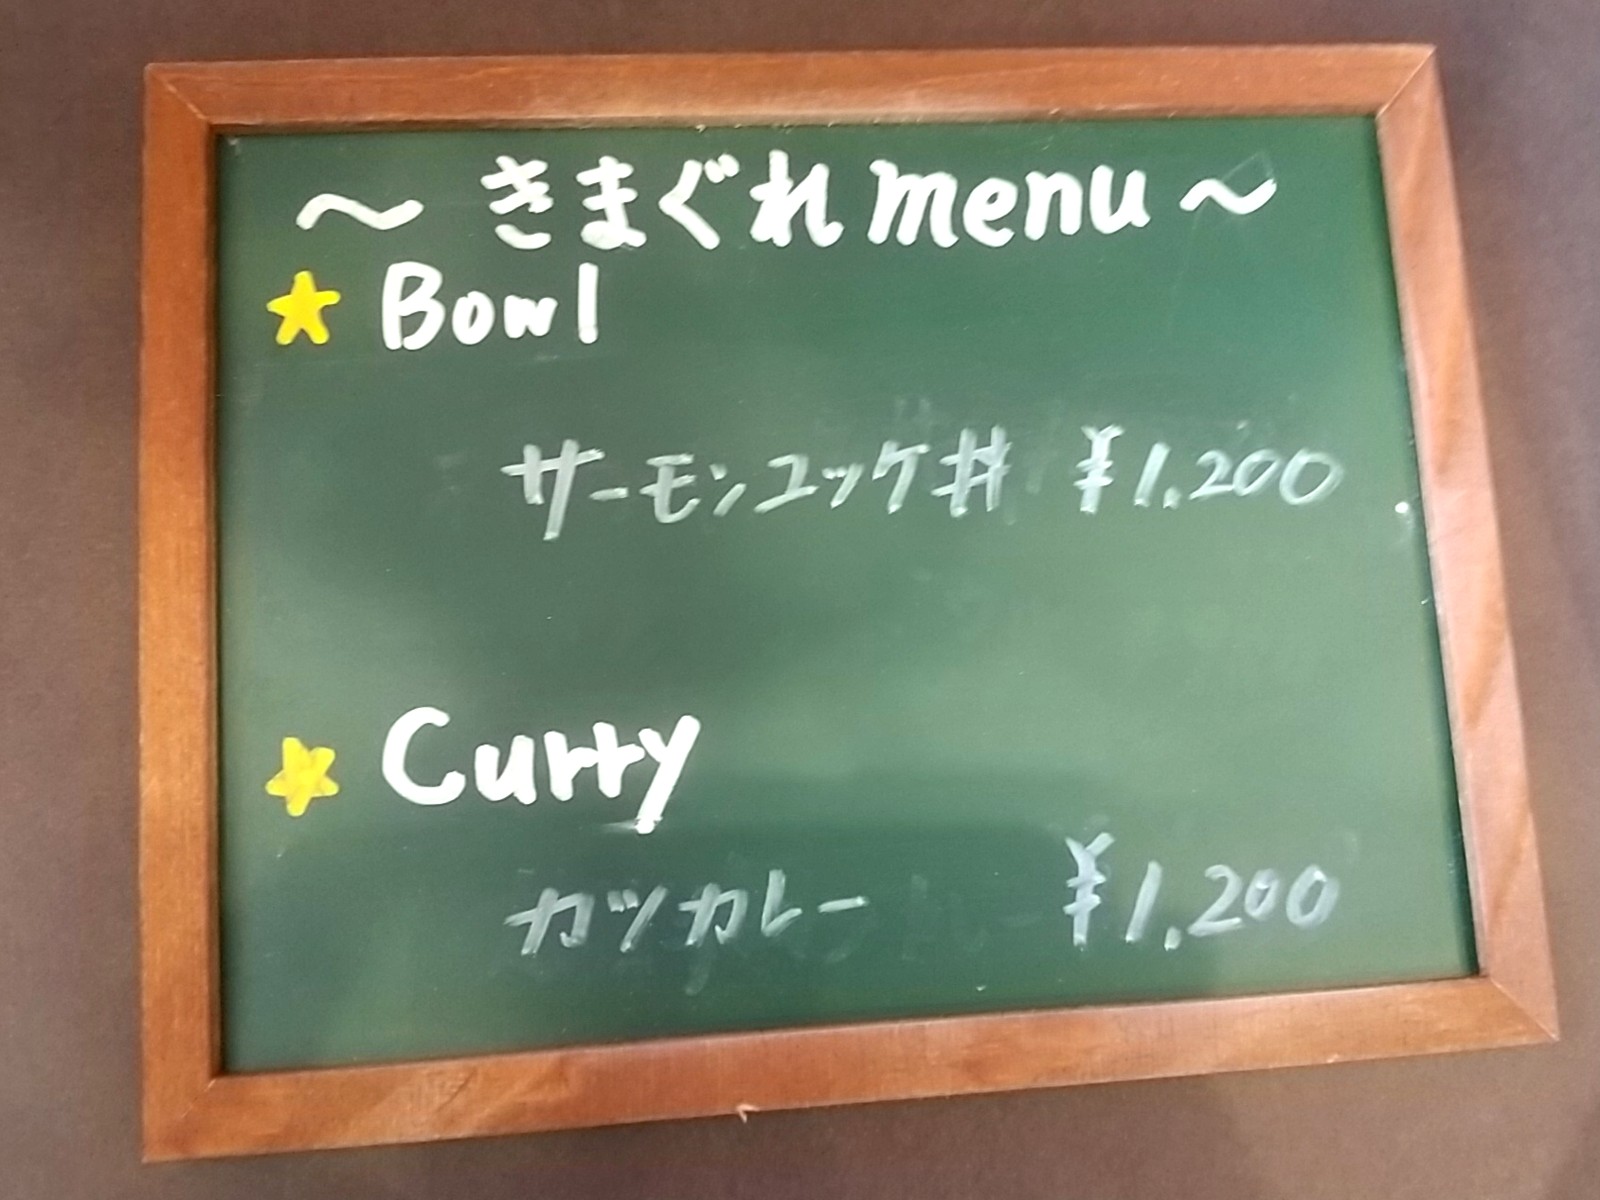 ～きまぐれmenu～
★ Bowl
サーモンユッケ丼 ¥1.200
★ Curry
カツカレー ¥1.200